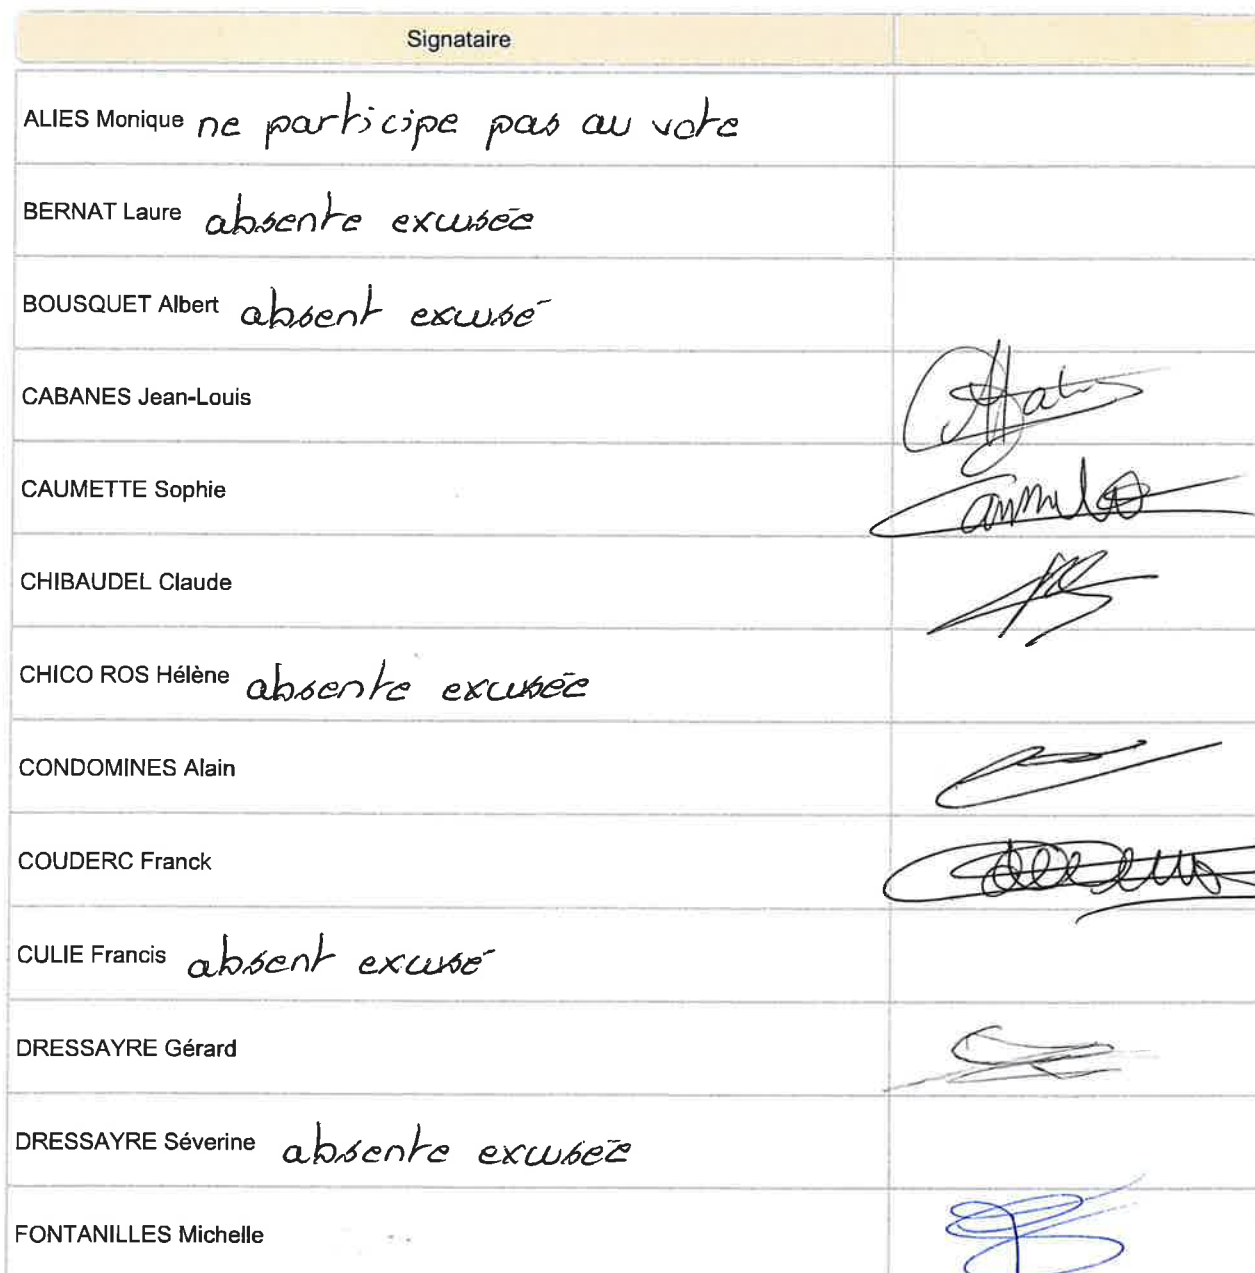 Signataire
ALIES Monique ne participe pas au vote
BERNAT Laure absente excusée
BOUSQUET Albert absent excusé
CABANES Jean-Louis
CAUMETTE Sophie
CHIBAUDEL Claude
CHICO ROS Hélène absente excusée
CONDOMINES Alain
COUDERC Franck
CULIE Francis absent excusé
DRESSAYRE Gérard
DRESSAYRE Séverine absente excusée
FONTANILLES Michelle